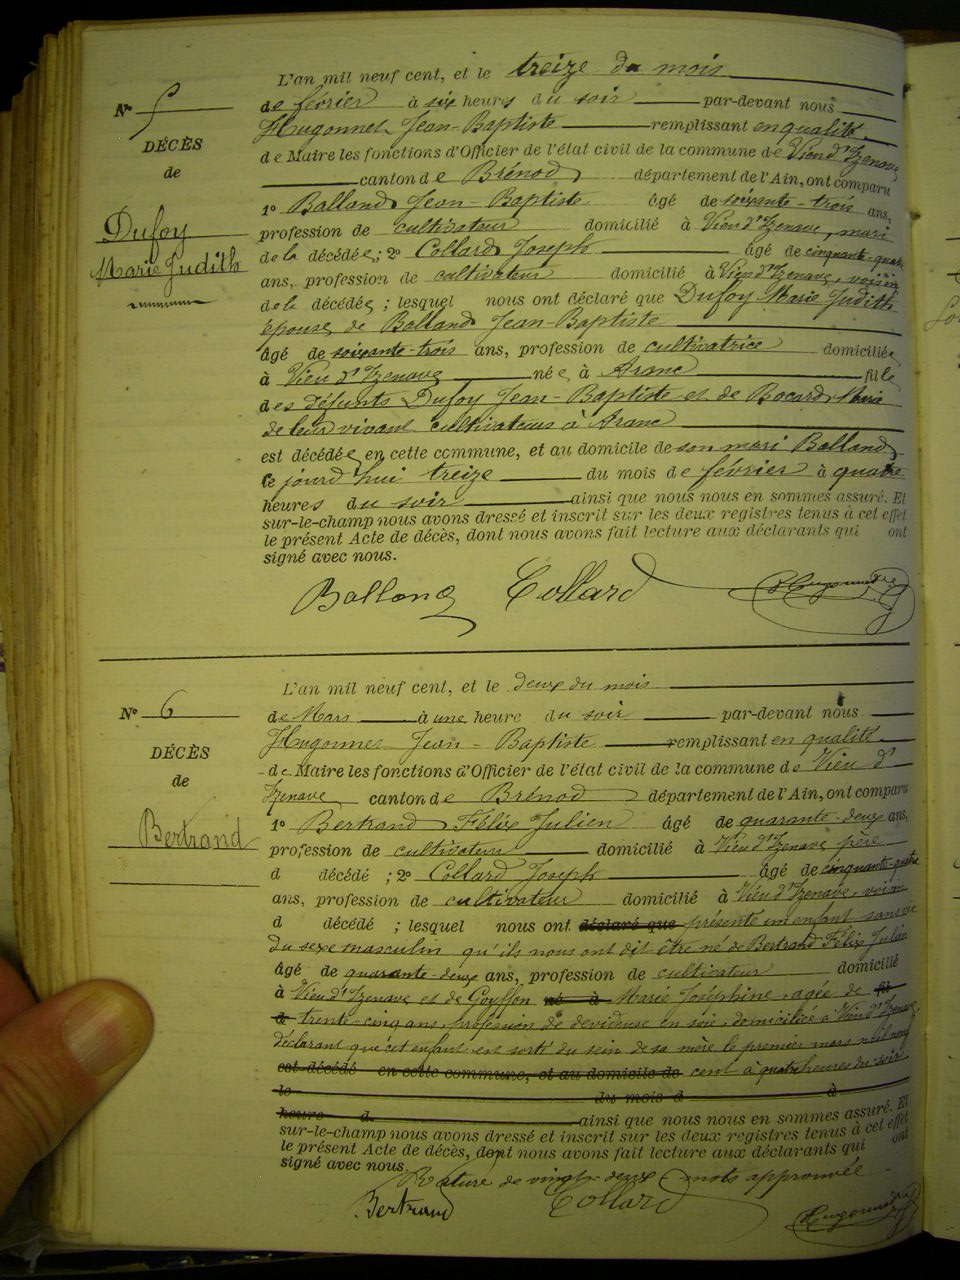 L'an mil neuf cent, et le treize du mois
Nº 5
de février à six heures du soir par-devant nous
Hugonnet Jean-Baptiste remplissant en qualité
DÉCÈS
de Maire les fonctions d'Officier de l'état civil de la commune de Vieu d'Izenave
de
canton de Brénod département de l'Ain, ont comparu
1º Balland Jean-Baptiste âgé de soixante-trois ans,
Dufoy
profession de cultivateur domicilié à Vieu d'Izenave, mari
Marie Judith
de la décédée; 2º Collard Joseph âgé de cinquante-quatre
ans, profession de cultivateur domicilié à Vieu d'Izenave, voisin
de la décédée; lesquel nous ont déclaré que Dufoy Marie Judith
épouse de Balland Jean-Baptiste
âgé de soixante-trois ans, profession de cultivatrice domiciliée
à Vieu d'Izenave née à Aranc fille
des défunts Dufoy Jean-Baptiste et de Bocard Marie
de leur vivant cultivateurs à Aranc
est décédée en cette commune, et au domicile de son mari Balland
ce jourd'hui treize du mois de février à quatre
heures du soir ainsi que nous nous en sommes assuré. Et
sur-le-champ nous avons dressé et inscrit sur les deux registres tenus à cet effet
le présent Acte de décès, dont nous avons fait lecture aux déclarants qui ont
signé avec nous.
Balland Collard Hugonnet
L'an mil neuf cent, et le deux du mois
Nº 6
de Mars à une heure du soir par-devant nous
Hugonnet Jean-Baptiste remplissant en qualité
DÉCÈS
de Maire les fonctions d'Officier de l'état civil de la commune de Vieu d'
de
Izenave canton de Brénod département de l'Ain, ont comparu
1º Bertrand Félix Julien âgé de quarante-deux ans,
Bertrand
profession de cultivateur domicilié à Vieu d'Izenave père
d décédé; 2º Collard Joseph âgé de cinquante-quatre
ans, profession de cultivateur domicilié à Vieu d'Izenave, voisin
d décédé; lesquel nous ont déclaré que présenté un enfant sans vie
du sexe masculin qu'ils nous ont dit être né de Bertrand Félix Julien
âgé de quarante-deux ans, profession de cultivateur domicilié
à Vieu d'Izenave et de Goyffon né à Marie Joséphine, agée de fil
d trente-cinq ans, profession de devideuse en soie, domiciliée à Vieu d'Izenave
déclarant que cet enfant est sorti du sein de sa mère le premier mars mil neuf
est décédé en cette commune, et au domicile de cent à quatre heures du soir
le du mois d à
heure d ainsi que nous nous en sommes assuré. Et
sur-le-champ nous avons dressé et inscrit sur les deux registres tenus à cet effet
le présent Acte de décès, dont nous avons fait lecture aux déclarants qui ont
signé avec nous.
Rature de vingt-deux mots approuvée
Bertrand Collard Hugonnet